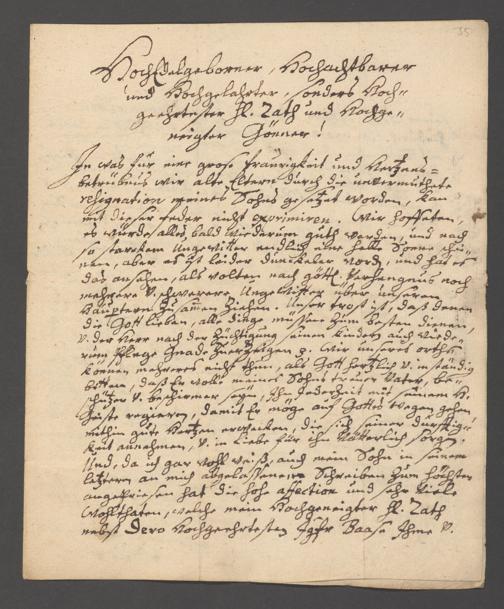 35
HochEdelgeborner, Hochachtbarer
und Hochgelahrter, sonders Hoch-
geehrtester H. Rath und Hochge-
neigter Gönner!
In was für eine grose Traurigkeit und Hertzens-
betrübnis wir alte Eltern durch die unvermuthete
resignation meines Sohns gesetzt worden, kan
mit dieser feder nicht exprimiren. Wir hoffeten,
es würde alles bald wiederum guth werden, und nach
so starckem Ungewitter endlich eine helle Sonne
aber es ist leider dunckeler word, und hat es
das ansehen, als wolten nach göttl. Verhengnis noch
mehrere v. schwerere Ungewitter über unseren
Häuptern zusamen ziehen. Unser trost ist, daß denen
die Gott lieben, alle dinge müssen zum besten dienen,
v. der Herr nach der Züchtigung seinen kindern auch wiede-
rum Gnade Wir unseres orths
können mehreres nicht thun, als Gott hertzlich v. inständig
bitten, daß Er wolle meines Sohns treuer Vater, be-
schützer v. beschirmer seyn, Ihn Jederzeit mit seinem H.
Geiste regieren, damit Er möge auf Gottes wegen gehen,
mithin gute Hertzen erwecken, die sich seiner durfftig-
keit annehmen, v. in Liebe für ihn Väterlich sorgen.
Und, da ich gar wohl weiß, auch mein Sohn in seinem
letztern an mich abgelassenen Schreiben zum höchsten
angepriesen hat die hohe affection und sehr viele
Wohlthaten, welche mein Hochgeneigter H. Rath
nebst Dero Hochgeehrtesten Jgfr Baase Ihme v.